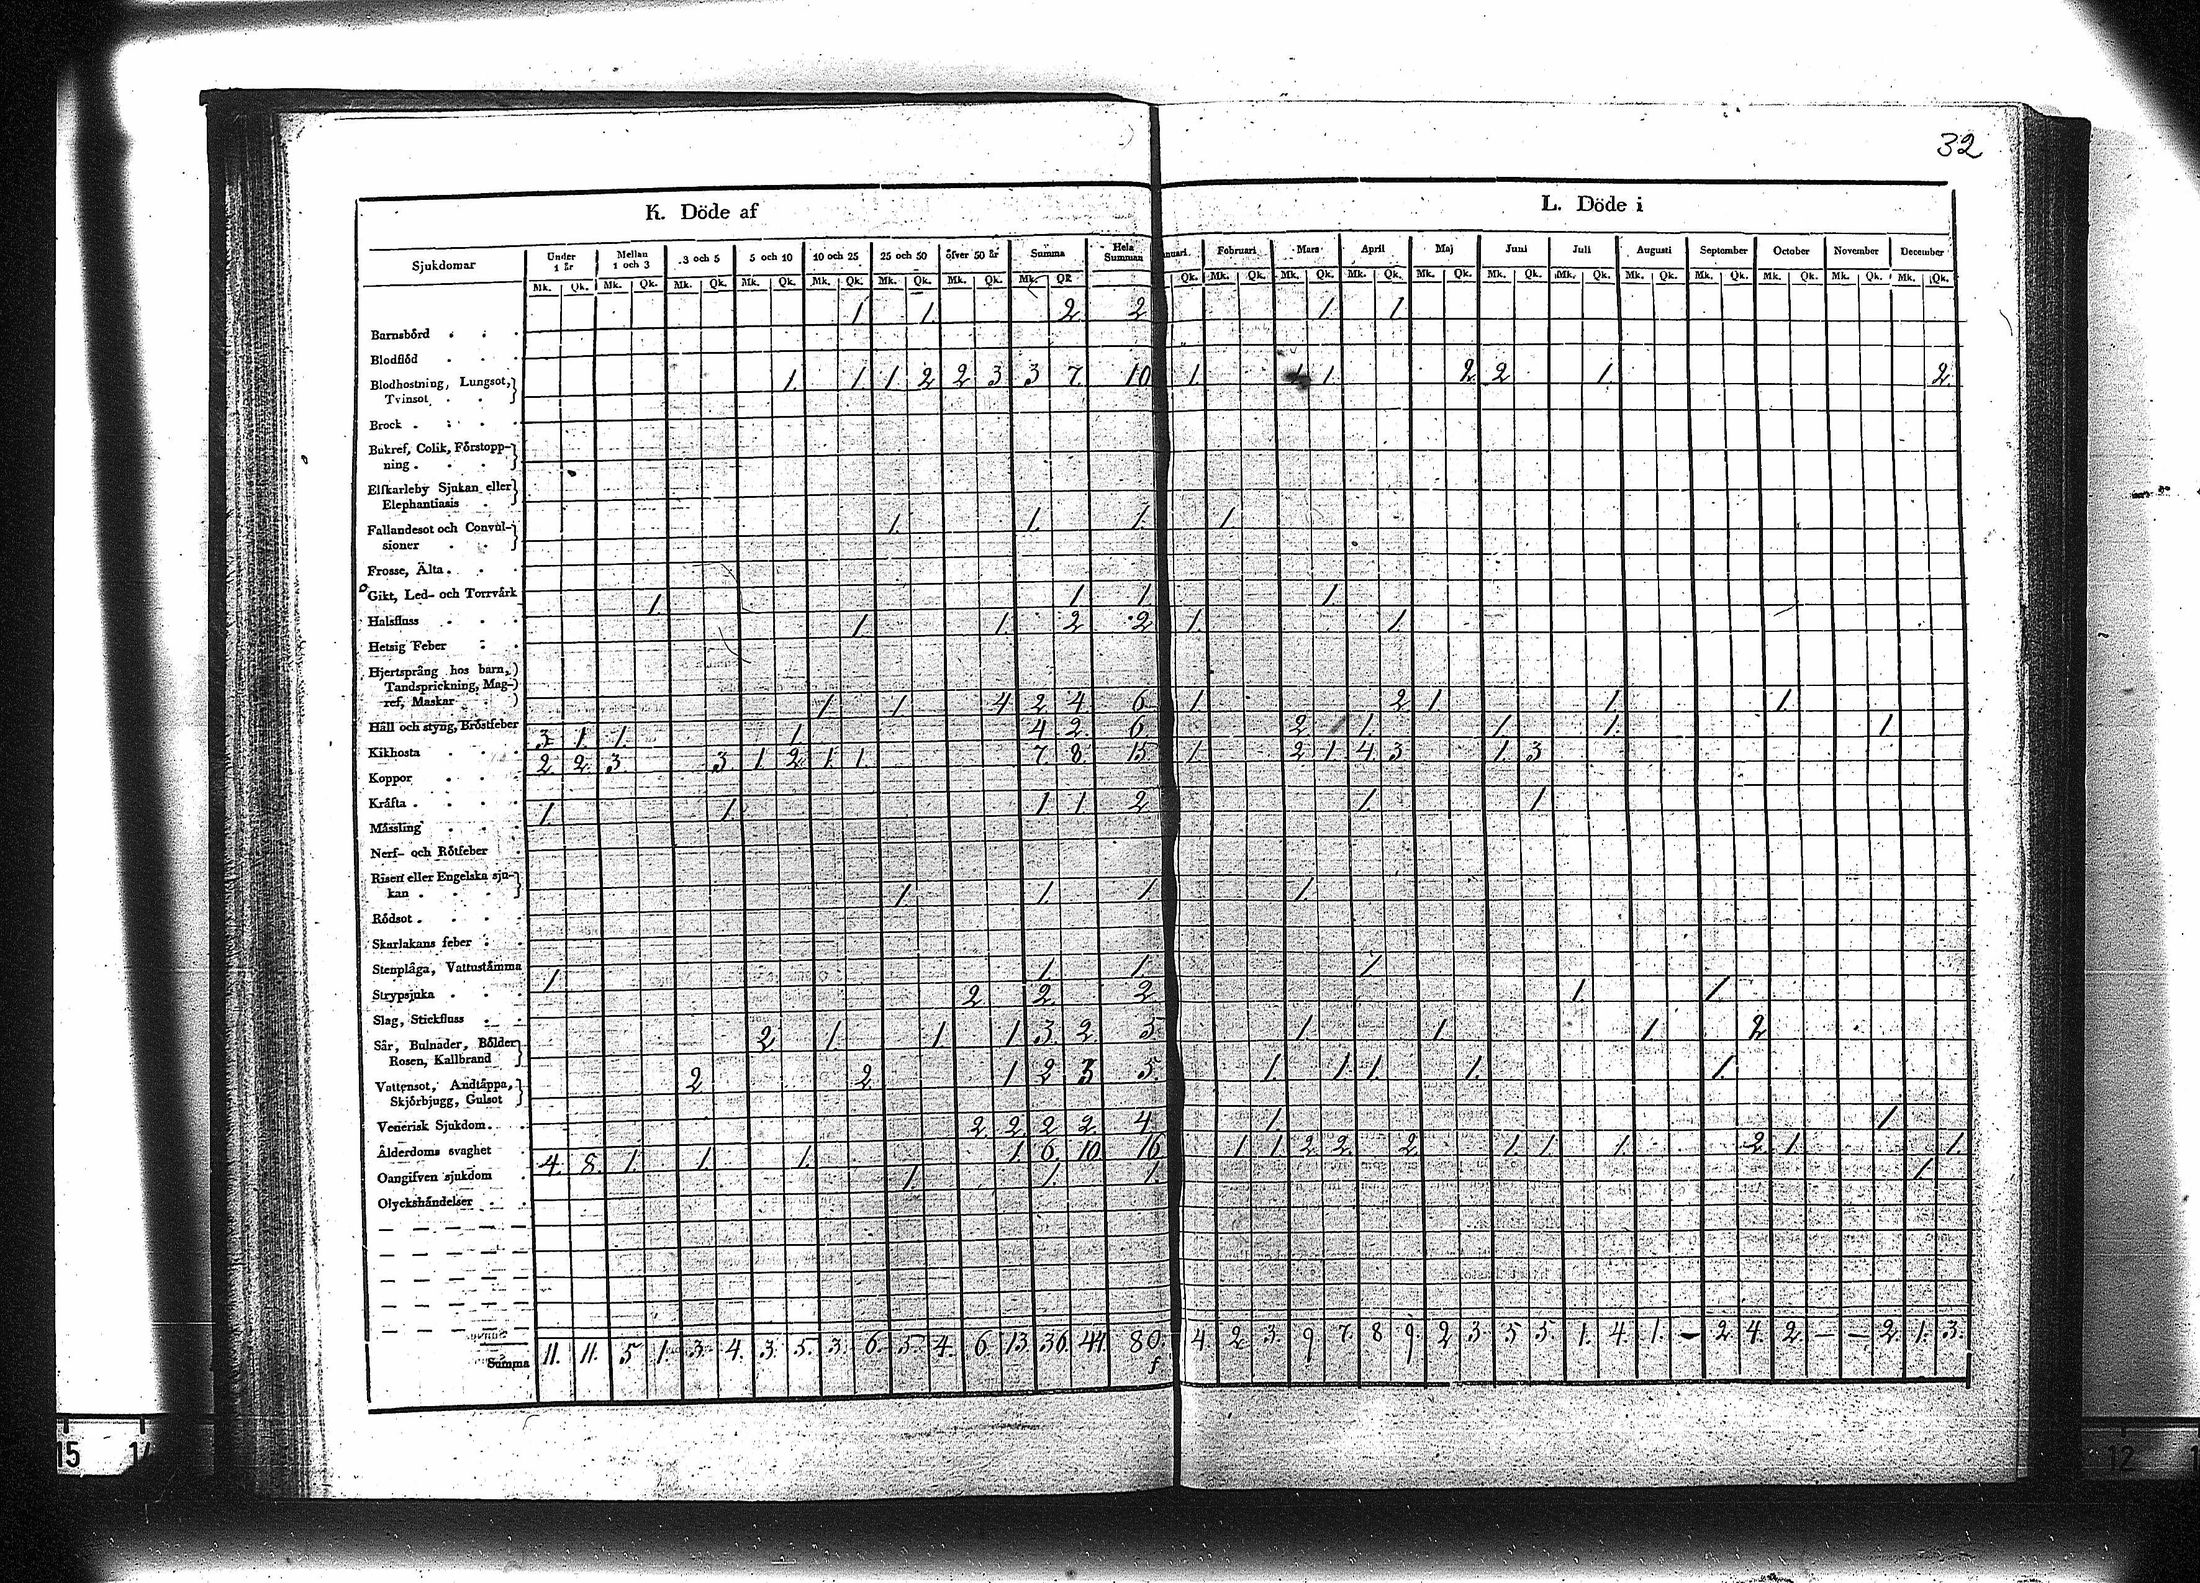 32
K. Döde af
L. Döde i
Sjukdomar Under 1 år Mellan 1 och 3 3 och 5 5 och 10 10 och 25 25 och 50 öfver 50 år Summa Hela Summan nuari. Februari Mars April Maj Juni Juli Augusti September October November December
Mk. Qk. Mk. Qk. Mk. Qk. Mk. Qk. Mk. Qk. Mk. Qk. Mk. Qk. Mk. Qk Qk. Mk. Qk. Mk. Qk. Mk. Qk. Mk. Qk. Mk. Qk. Mk. Qk. Mk. Qk. Mk. Qk. Mk. Qk. Mk. Qk. Mk. Qk.
Barnsbörd 1 1. 2. 2 1. 1.
Blodflöd
Blodhostning, Lungsot, Tvinsot 1. 1 1 2 2 3 3 7. 10 1. 1. 2. 2. 1. 2.
Brock
Bukref, Colik, Förstoppning
Elfkarleby Sjukan eller Elephantiasis
Fallandesot och Convulsioner 1. 1. 1. 1.
Frosse, Älta
Gikt, Led- och Torrvärk
Halsfluss 1. 1. 1. 1.
Hetsig Feber 1. 1. 2 2 1. 1.
Hjertsprång hos barn, Tandsprickning, Magref, Maskar
Håll och styng, Bröstfeber 1. 1. 4 2 4. 6 1 2 1 1. 1.
Kikhosta 3. 1. 1. 1. 4 2. 6 2 1 1. 1. 1. 1.
Koppor 2. 2. 3. 3. 1. 2. 1. 1. 7. 8. 15. 1. 2. 1. 4. 3. 1. 3.
Kräfta
Mässling 1. 1. 1 1. 2 1. 1.
Nerf- och Rötfeber
Risen eller Engelska sjukan
Rödsot 1. 1. 1. 1.
Skarlakans feber
Stenplåga, Vattustämma
Strypsjuka 1. 1. 1. 1.
Slag, Stickfluss 2 2. 2 1. 1.
Sår, Bulnader, Bölder Rosen, Kallbrand 2 1. 1 1 3. 2. 5. 1. 1. 1. 2.
Vattensot, Andtäppa, Skjörbjugg, Gulsot 2 2. 1 2 3 5. 1. 1. 1. 1. 1.
Venerisk Sjukdom
Ålderdoms svaghet 2. 2. 2 2. 4 1. 1.
Oangifven sjukdom 4. 8. 1. 1. 1. 1. 6. 10. 16. 1 1. 2 2. 2. 1. 1. 1. 2. 1. 1.
Olyckshändelser 1. 1. 1. 1.
Summa 11. 11. 5 1. 3. 4. 3. 5. 3. 6. 5. 4. 6. 13. 36. 44. 80. 4. 2. 3. 9 7. 8. 9. 2 3. 5 5. 1. 4. 1. – 2. 4. 2. – – 2. 1. 3.
15 14 12